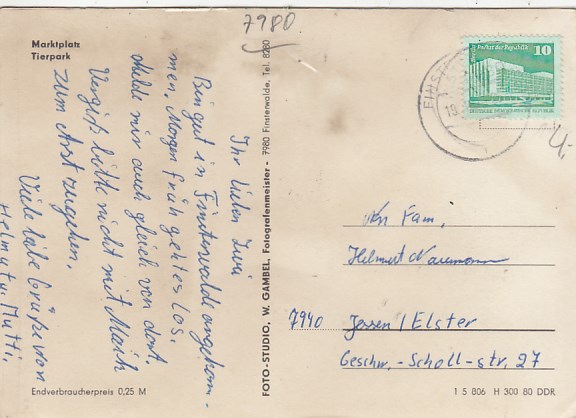 7980
Marktplatz
Tierpark
Ihr lieben Zwei
Bin gut in Finsterwalde angekom-
men. Morgen früh geht es los.
Melde mir auch gleich von dort.
Vergiß bitte nicht mit Maik
zum Arzt zugehen.
Viele liebe Grüße von
Helmut u. Mutti.
Endverbraucherpreis 0,25 M
FOTO-STUDIO, W. GAMBEL, Fotografenmeister - 7980 Finsterwalde, Tel. 8280
FINST
Berlin Palast der Republik
10
An Fam.
Helmut Naumann
7940 Jessen / Elster
Geschw.-Scholl-str. 27
1 5 806 H 300 80 DDR